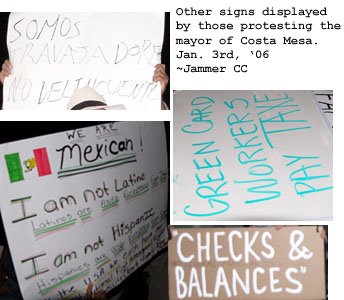 Other signs displayed
by those protesting the
mayor of Costa Mesa.
Jan. 3rd, '06
~Jammer CC
SOMOS
TRAVAJADORES
NO DELINCUENTE
GREEN CARD
WORKERS
PAY TAXE
WE ARE
Mexican!
I am not Latino
Latinos are
I am not Hispanic
Hispanics are
the
CHECKS &
BALANCES"